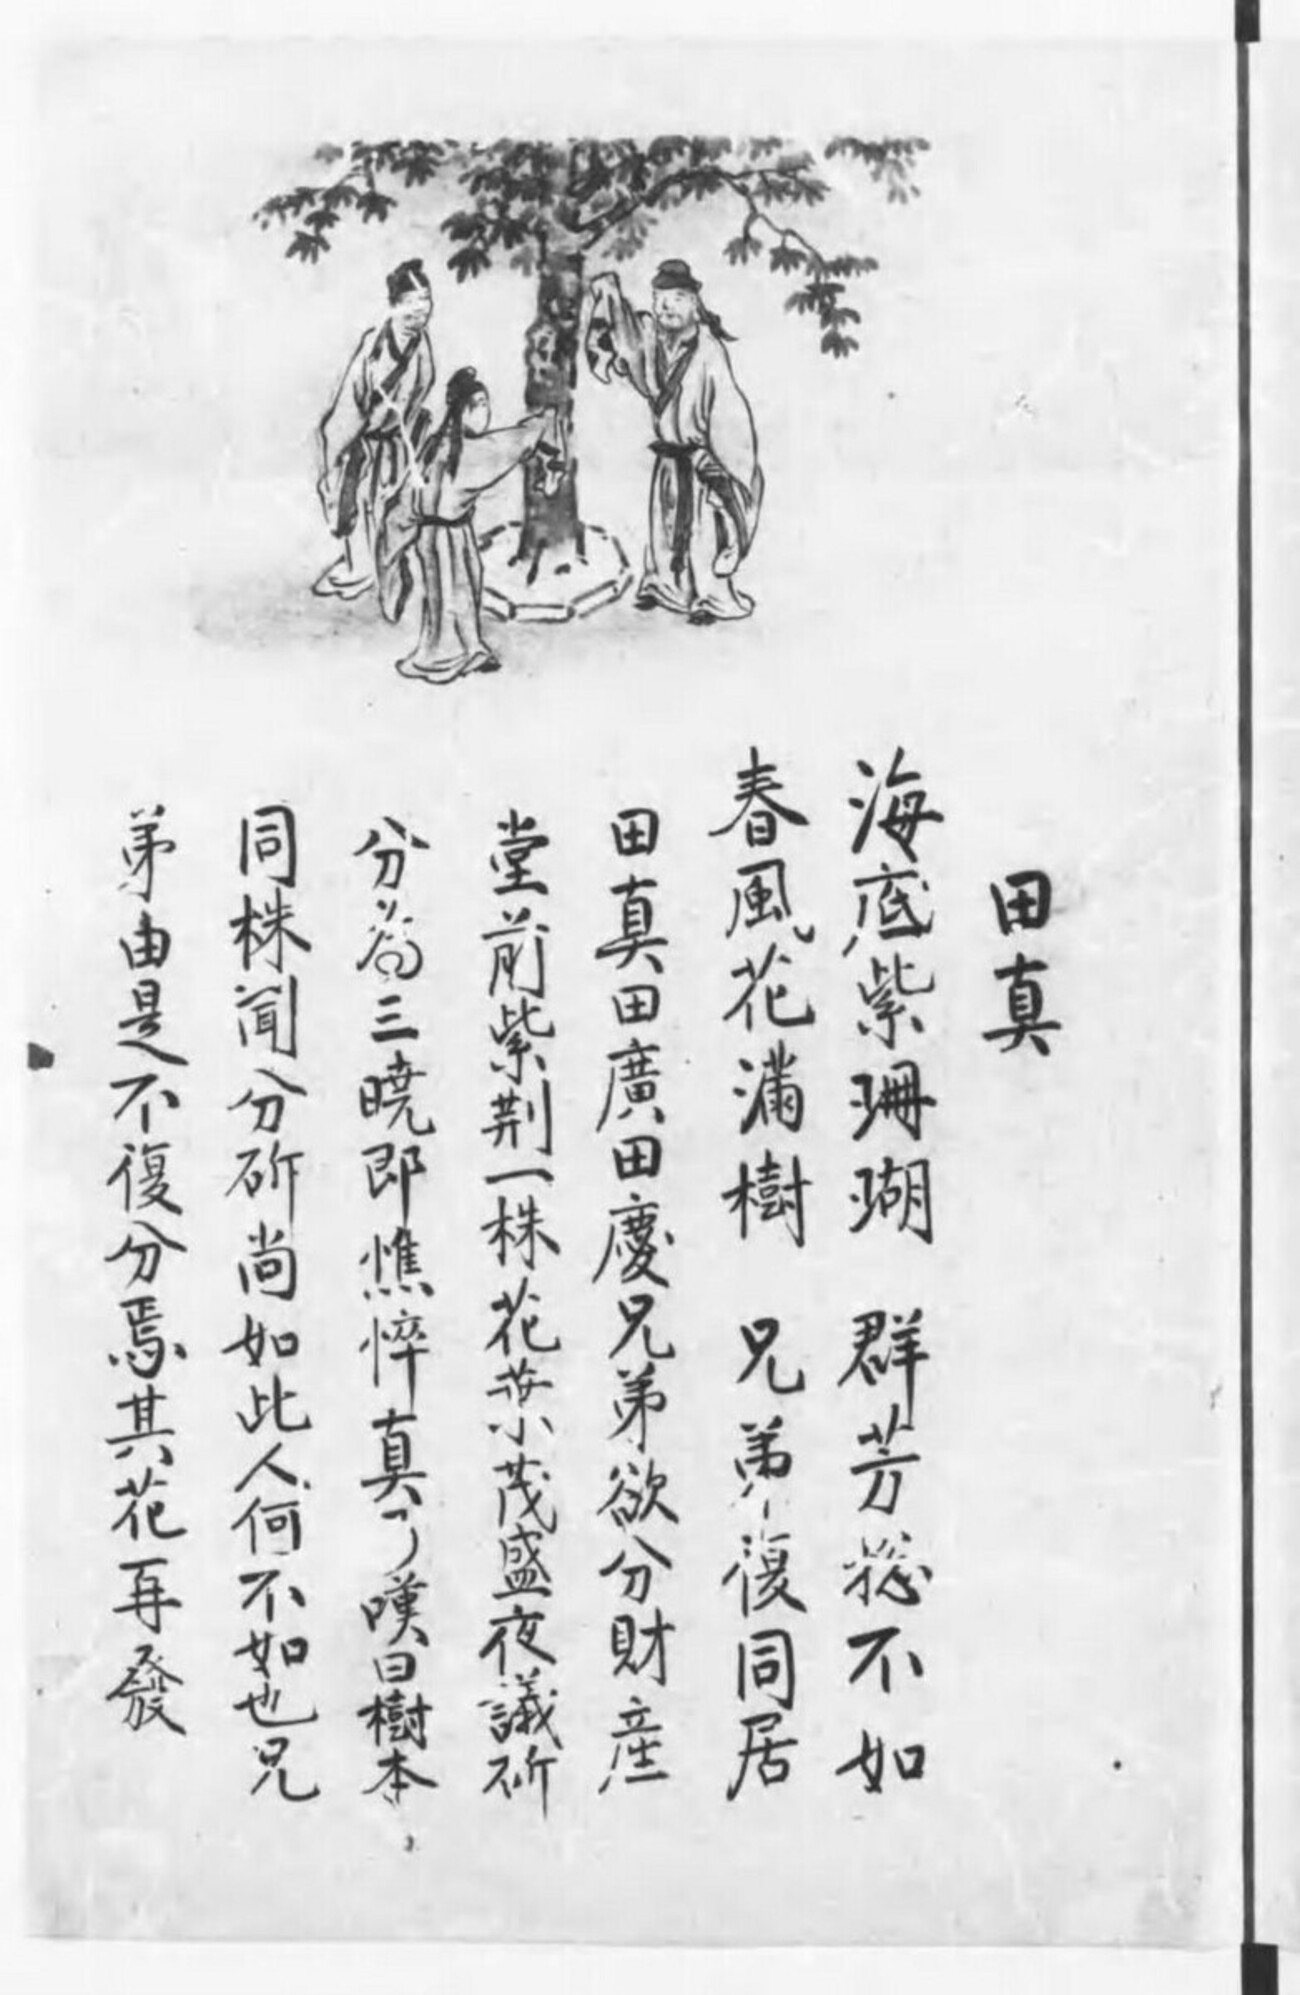 田真
海底紫珊瑚 群芳揔不如
春風花滿樹 兄弟復同居
田真田廣田慶兄弟欲分財産
堂前紫荆一株花葉茂盛夜議斫
分為三曉即憔悴真々嘆曰樹本
同株聞分斫尚如此人何不如也兄
弟由是不復分焉其花再發